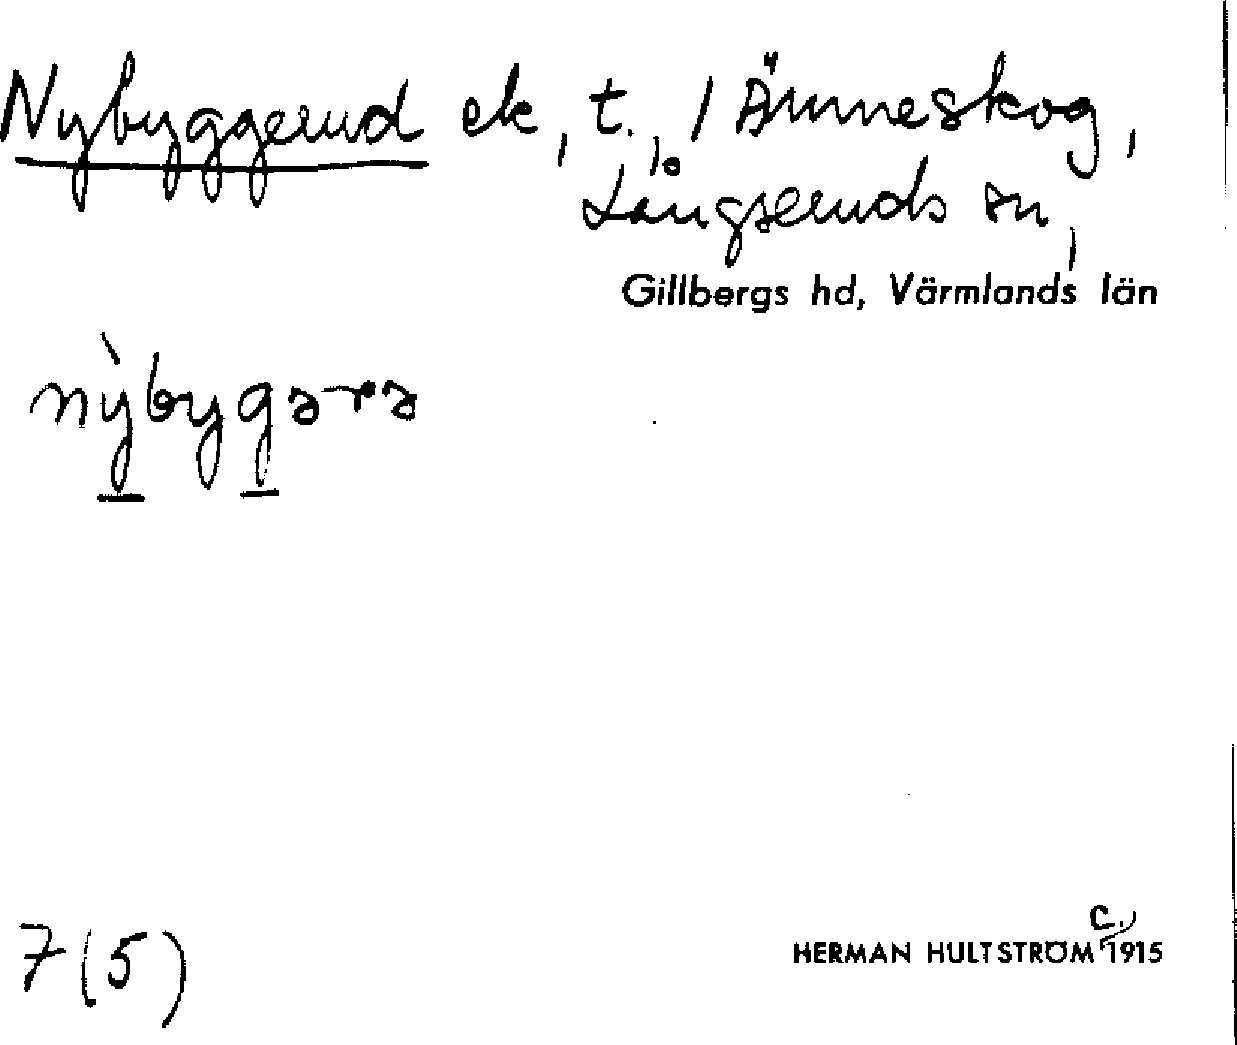 Nybyggerud ek, t., / Änneskog,
Långseruds sn,
Gillbergs hd, Värmlands län
nỳbygərə
7(5)
HERMAN HULTSTRÖM c., 1915